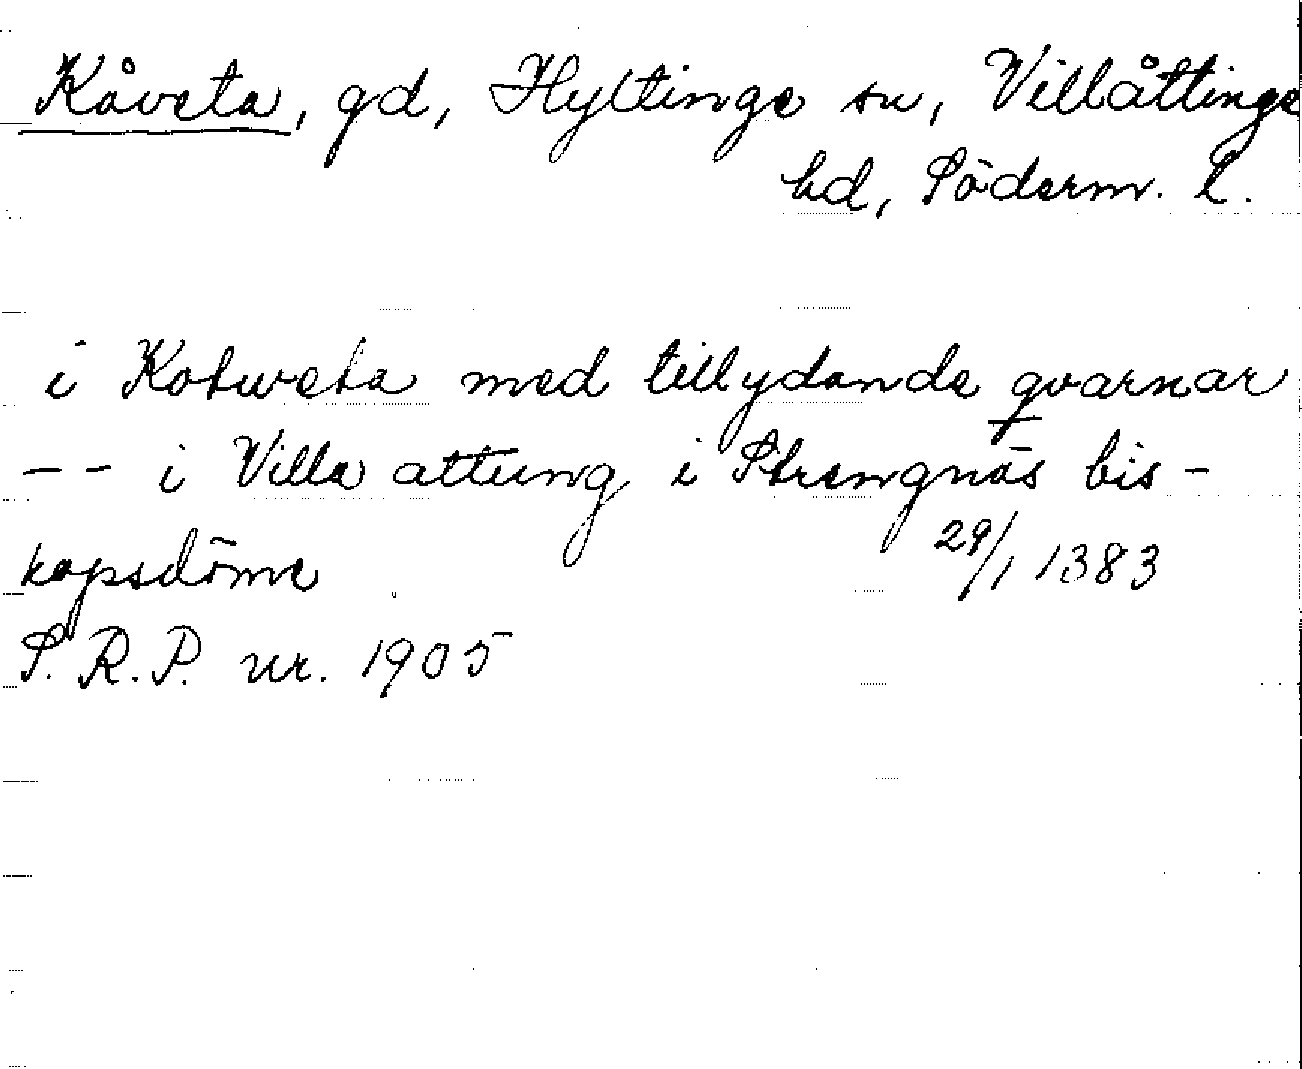 Kåveta, gd, Hyltinge sn, Villåttinge
hd, Söderm. l.
i Kotweta med tillydande qvarnar
-- i Villa attung i Strengnäs bis-
kopsdöme 29/1 1383
S.R.P. nr. 1905